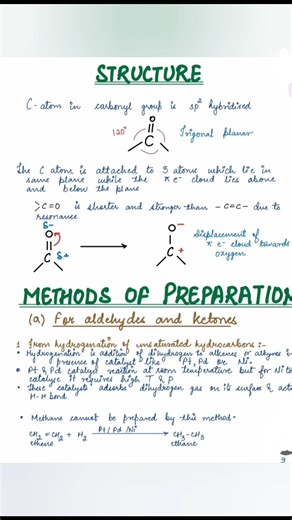 STRUCTURE
C-atom in carbonyl group is sp² hybridised
O
120°
C
Trigonal planar
The C atom is attached to 3 atoms which lie in
same plane while the π e⁻ cloud lies above
and below the plane
>C=O is shorter and stronger than -C=C- due to
resonance
δ-
O
C
δ+
O⁻
C
+
Displacement of
π e⁻ cloud towards
oxygen
METHODS OF PREPARATION
(a) For aldehydes and ketones
1 From hydrogenation of unsaturated hydrocarbons :-
• Hydrogenation is addition of dihydrogen to alkenes or alkynes in
presence of catalyst like Pt, Pd or Ni.
• Pt & Pd catalyse reaction at room temperature but for Ni to
catalyse it requires high T & P
• These catalysts adsorbs dihydrogen gas on its surface &
H-H bond
• Methane cannot be prepared by this method.
CH₂=CH₂ + H₂ Pt/Pd/Ni CH₃-CH₃
ethene ethane